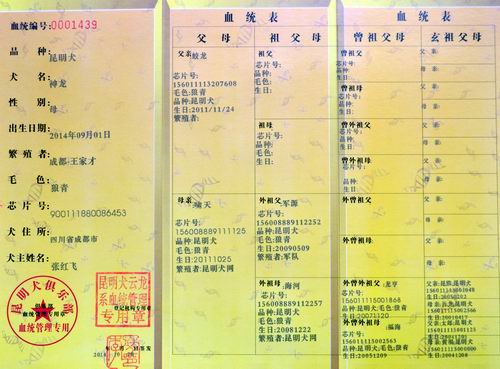 血统编号:0001439
品种: 昆明犬
犬名: 神龙
性别: 母
出生日期: 2014年09月01日
繁殖者: 成都·王家才
毛色: 狼青
芯片号: 900111880086453
犬住所: 四川省成都市
犬主姓名: 张红飞
昆明犬俱乐部
血统管理专用
昆明犬云龙
系血统管理
专用章
血统表
父母
祖父母
父亲:蛟龙
芯片号:
156011113207608
毛色:狼青
品种:昆明犬
生日:2011/11/24
繁殖者:
母亲:啸天
芯片号:
156008889111125
品种:昆明犬
毛色:狼青
生日:20111025
繁殖者:昆明犬网
祖父:
芯片号:
品种:
毛色:
生日:
祖母:
芯片号:
品种:
毛色:
生日:
外祖父:军源
芯片号:
156008889112252
品种:昆明犬
毛色:狼青
生日:20090509
繁殖者:军队
外祖母:海河
芯片号:
156008889112257
品种:昆明犬
毛色:狼青
生日:20081222
繁殖者:昆明犬网
血统表
曾祖父母
玄祖父母
曾祖父
芯片号:
品种:
生日:
曾祖母
芯片号:
品种:
生日:
曾外祖父
芯片号:
品种:
生日:
曾外祖母
芯片号:
品种:
生日:
外曾祖父:
外曾祖母:
曾外祖父:龙亨
芯片号:
156011115001868
毛色:狼青
生日:20031120
曾外祖母:福海
芯片号:
156011115002563
毛色:狼青
生日:20051209
父亲:
母亲:
父亲:
母亲:
父亲:
母亲:
父亲:
母亲:
父亲:
母亲:
父亲:
母亲: